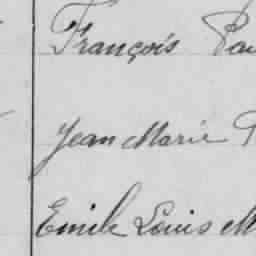 François Pau
Jean Marie
Emile Louis M